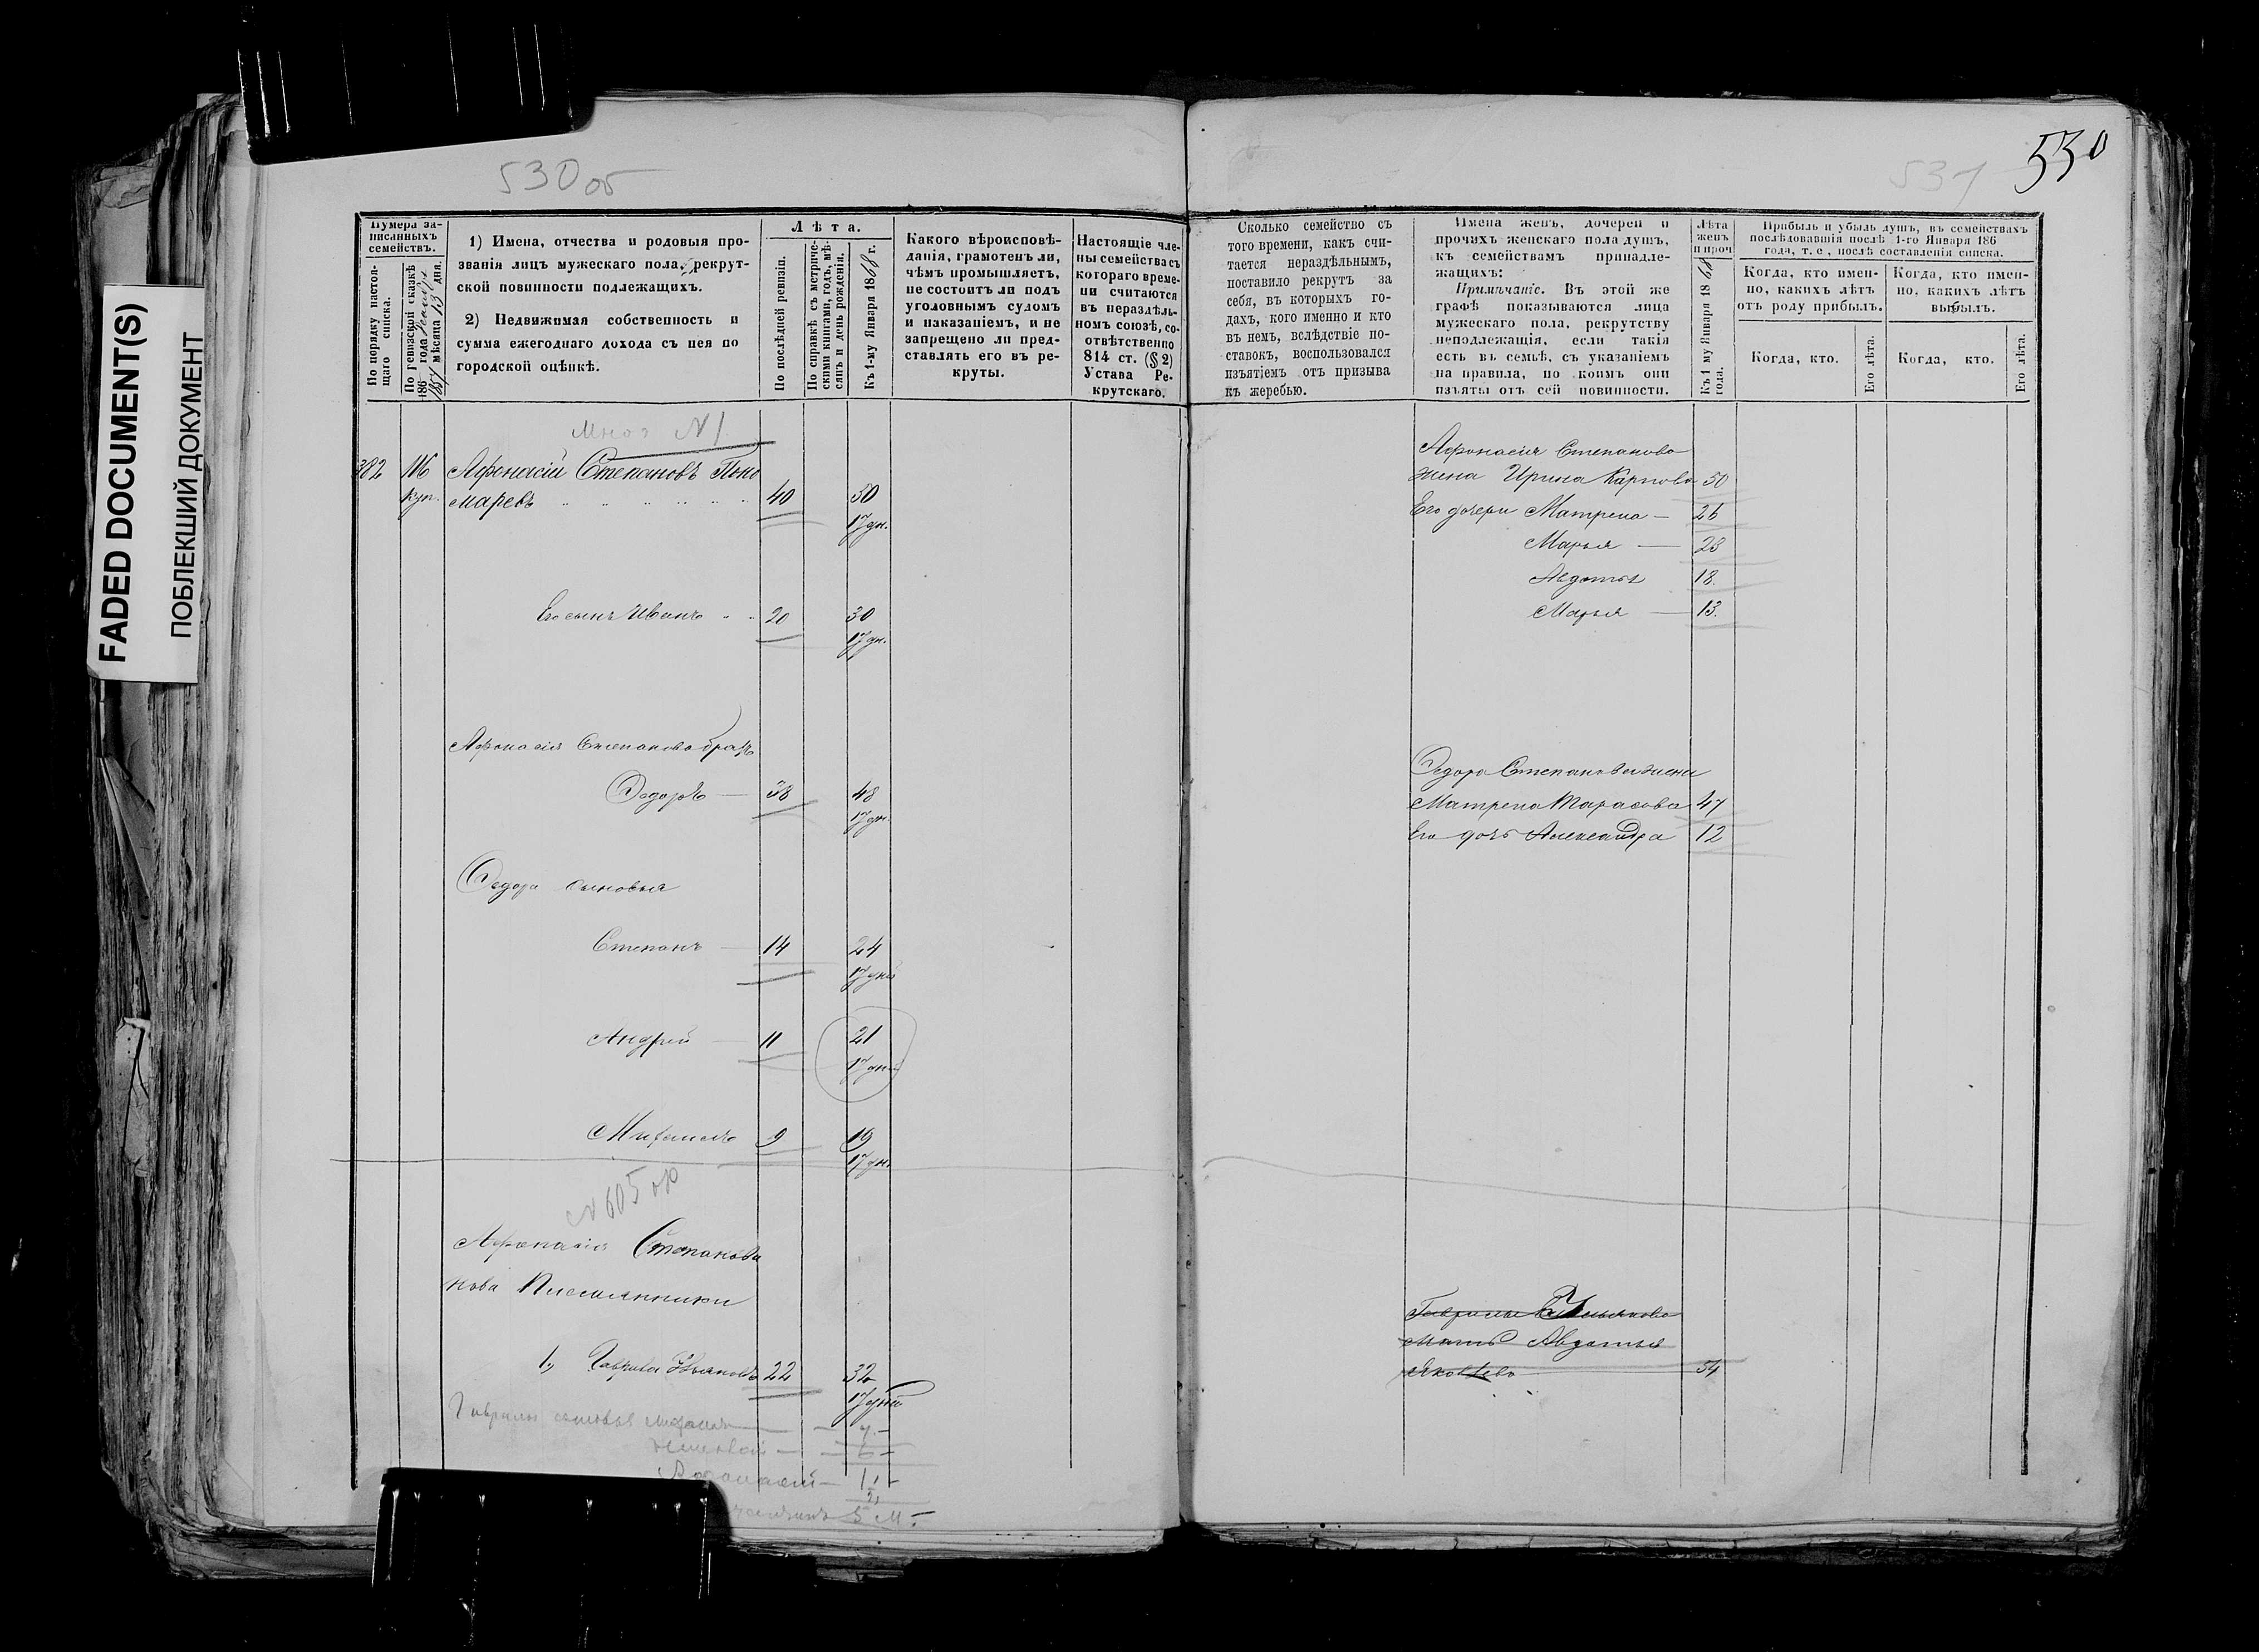 FADED DOCUMENT(S)
ПОБЛЕКШИЙ ДОКУМЕНТ
530 об
Нумера за-
писанныхъ
семействъ.
По порядку настоя-
щаго списка.
По ревизской сказкѣ
186 года
1857 мѣсяца 13 дня.
1) Имена, отчества и родовыя про-
званія лицъ мужескаго пола, рекрут-
ской повинности подлежащихъ.
2) Недвижимая собственность и
сумма ежегоднаго дохода съ нея по
городской оцѣнкѣ.
Лѣта.
По послѣдней ревизіи.
По справкѣ съ метриче-
скими книгами, годъ, мѣ-
сяцъ и день рожденія.
Къ 1-му Января 1868 г.
Какого вѣроисповѣ-
данія, грамотенъ ли,
чѣмъ промышляетъ,
не состоитъ ли подъ
уголовнымъ судомъ
и наказаніемъ, и не
запрещено ли пред-
ставлять его въ ре-
круты.
Настоящіе чле-
ны семейства съ
котораго време-
ни считаются
въ нераздѣль-
номъ союзѣ, со-
отвѣтственно
814 ст. (§ 2)
Устава Ре-
крутскаго.
N 1
382 116 Афонасій Степановъ Поно
куп. маревъ 40 50
17 дн.
Его сынъ Иванъ 20 30
17 дн.
Афонасія Степанова братъ
Ѳедоръ 38 48
17 дн.
Ѳедора сыновья
Степанъ 14 24
17 дней
Андрей 11 21
17 дней
Михаилъ 9 19
17 дн.
N 605
Афонасія Степанова
нова Племянники
1, Гаврила Ульяновъ 22 32
17 дней
Гаврилы сыновья Михаилъ 7
6
Афонасій 1 1/2
5 м.
531
530
Сколько семейство съ
того времени, какъ счи-
тается нераздѣльнымъ,
поставило рекрутъ за
себя, въ которыхъ го-
дахъ, кого именно и кто
въ немъ, вслѣдствіе по-
ставокъ, воспользовался
изъятіемъ отъ призыва
къ жеребью.
Имена женъ, дочерей и
прочихъ женскаго пола душъ,
къ семействамъ принадле-
жащихъ:
Примѣчаніе. Въ этой же
графѣ показываются лица
мужескаго пола, рекрутству
неподлежащія, если такія
есть въ семьѣ, съ указаніемъ
на правила, по коимъ они
изъяты отъ сей повинности.
Лѣта
женъ
и проч
Къ 1 му Января 1868
года.
Прибыль и убыль душъ, въ семействахъ
послѣдовавшія послѣ 1-го Января 186
года, т. е., послѣ составленія списка.
Когда, кто имен-
но, какихъ лѣтъ
отъ роду прибылъ.
Когда, кто имен-
но, какихъ лѣтъ
выбылъ.
Когда, кто.
Его лѣта.
Когда, кто.
Его лѣта.
Афонасія Степанова
жена Ирина Карпова 50
Его дочери Матрена 26
Марья 23
Авдотья 18
Марья 13.
Ѳедора Степанова жена
Матрена Тарасова 47
Его дочь Александра 12
Гаврилы Ульянова
мать Авдотья
Яковлева 54